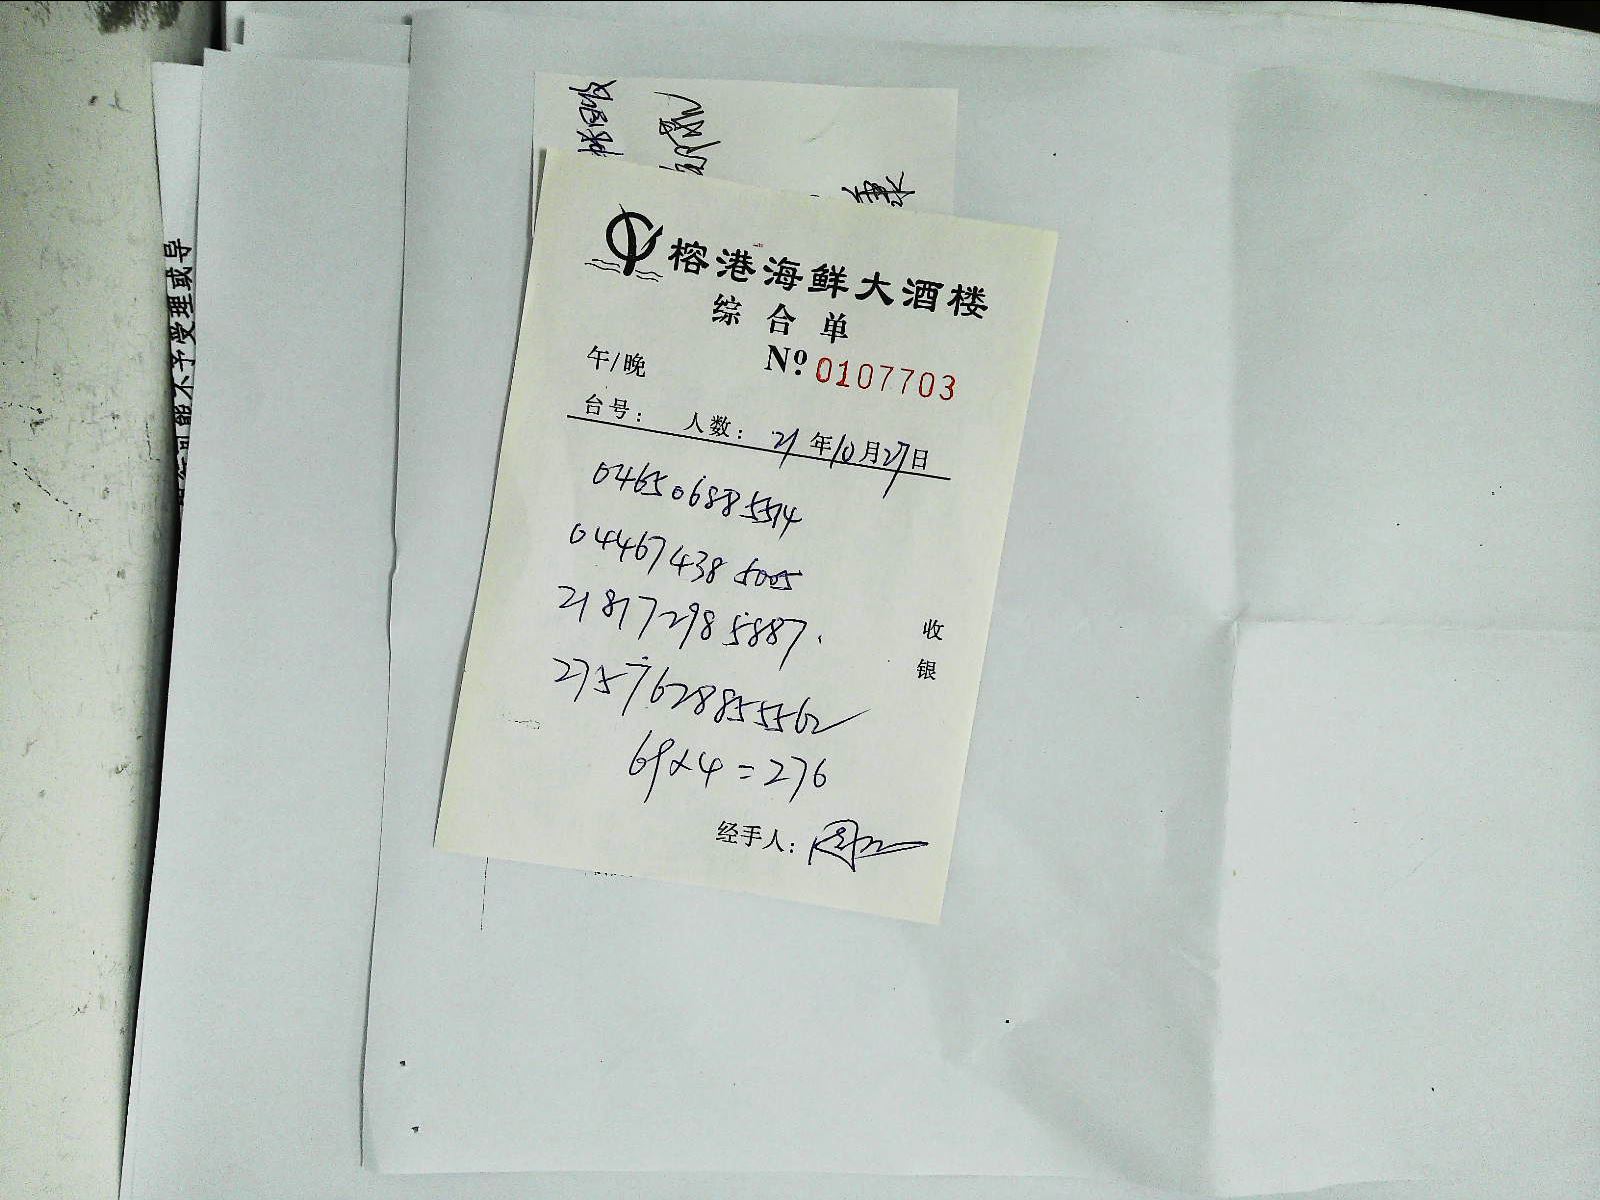 榕港海鲜大酒楼
综合单
午/晚 Nº 0107703
台号: 人数: 21年10月27日
046506885514
044674385005
218172985887.
275762885562
69×4=276
收
银
经手人:
不予受理或导